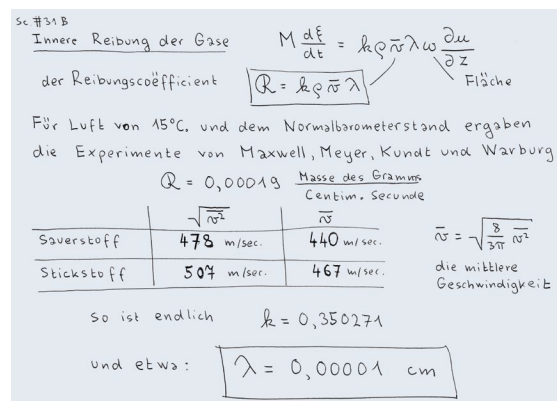 Sc #31 B
Innere Reibung der Gase
M dξ/dt = kρv̄λω ∂u/∂z
der Reibungscoëfficient
R = kρv̄λ
Fläche
Für Luft von 15°C. und dem Normalbarometerstand ergaben
die Experimente von Maxwell, Meyer, Kundt und Warburg
R = 0,00019 Masse des Gramms / Centim. Secunde
√v̄² v̄
Sauerstoff 478 m/sec. 440 m/sec.
Stickstoff 507 m/sec. 467 m/sec.
v̄ = √(8/3π v̄²)
die mittlere
Geschwindigkeit
so ist endlich k = 0,350271
und etwa: λ = 0,00001 cm